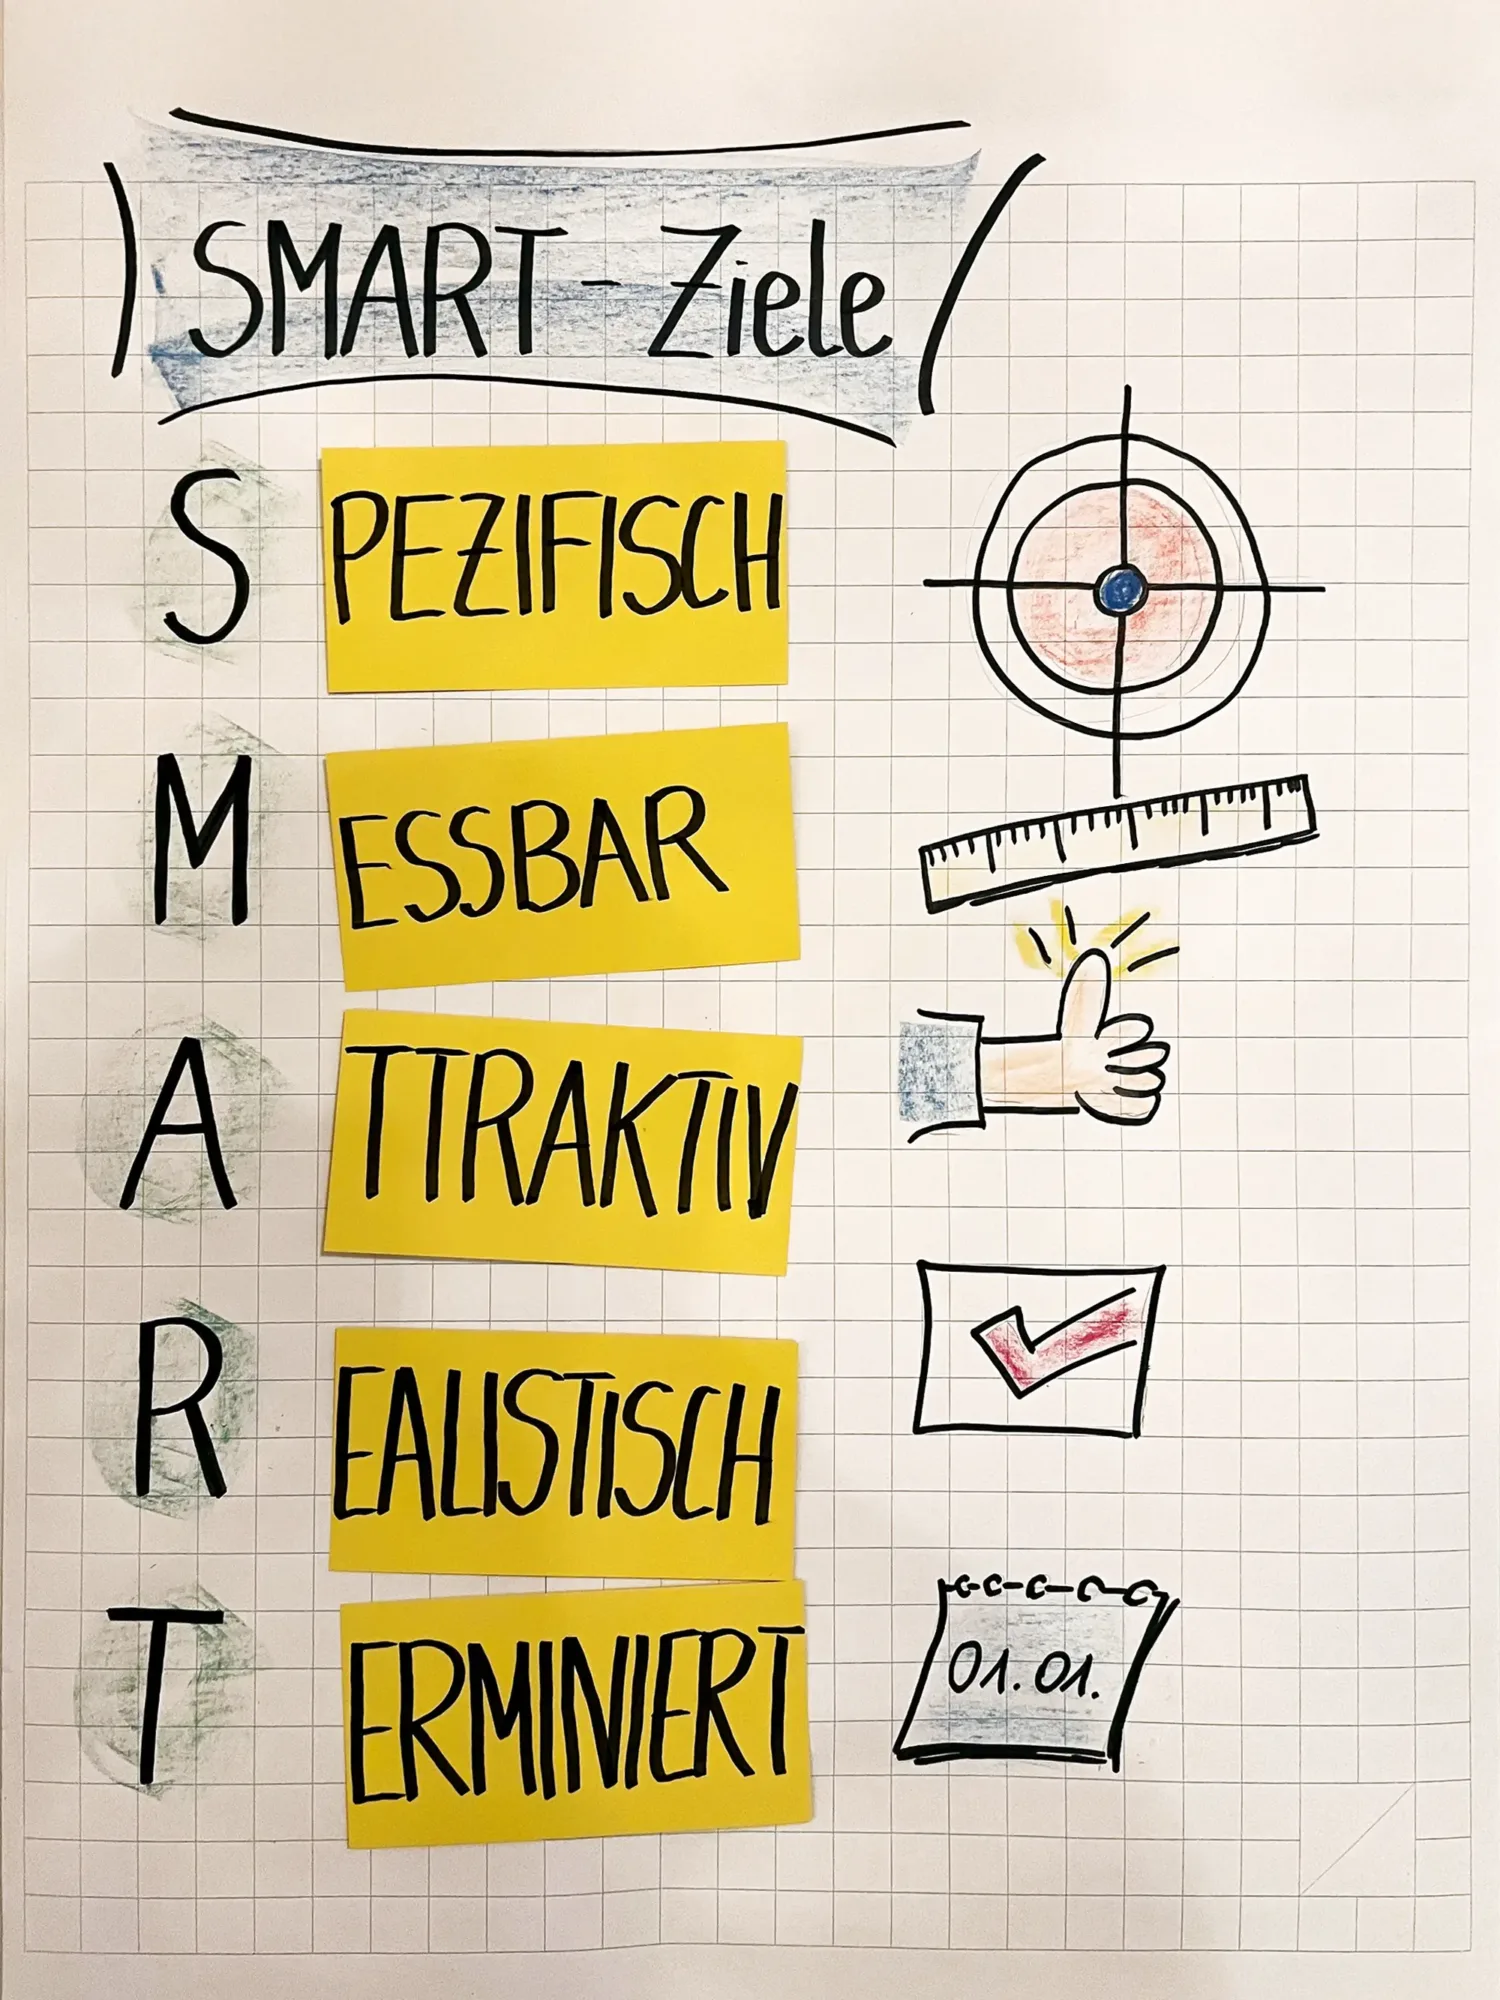 SMART - Ziele
S PEZIFISCH
M ESSBAR
A TTRAKTIV
R EALISTISCH
T ERMINIERT
01.01.